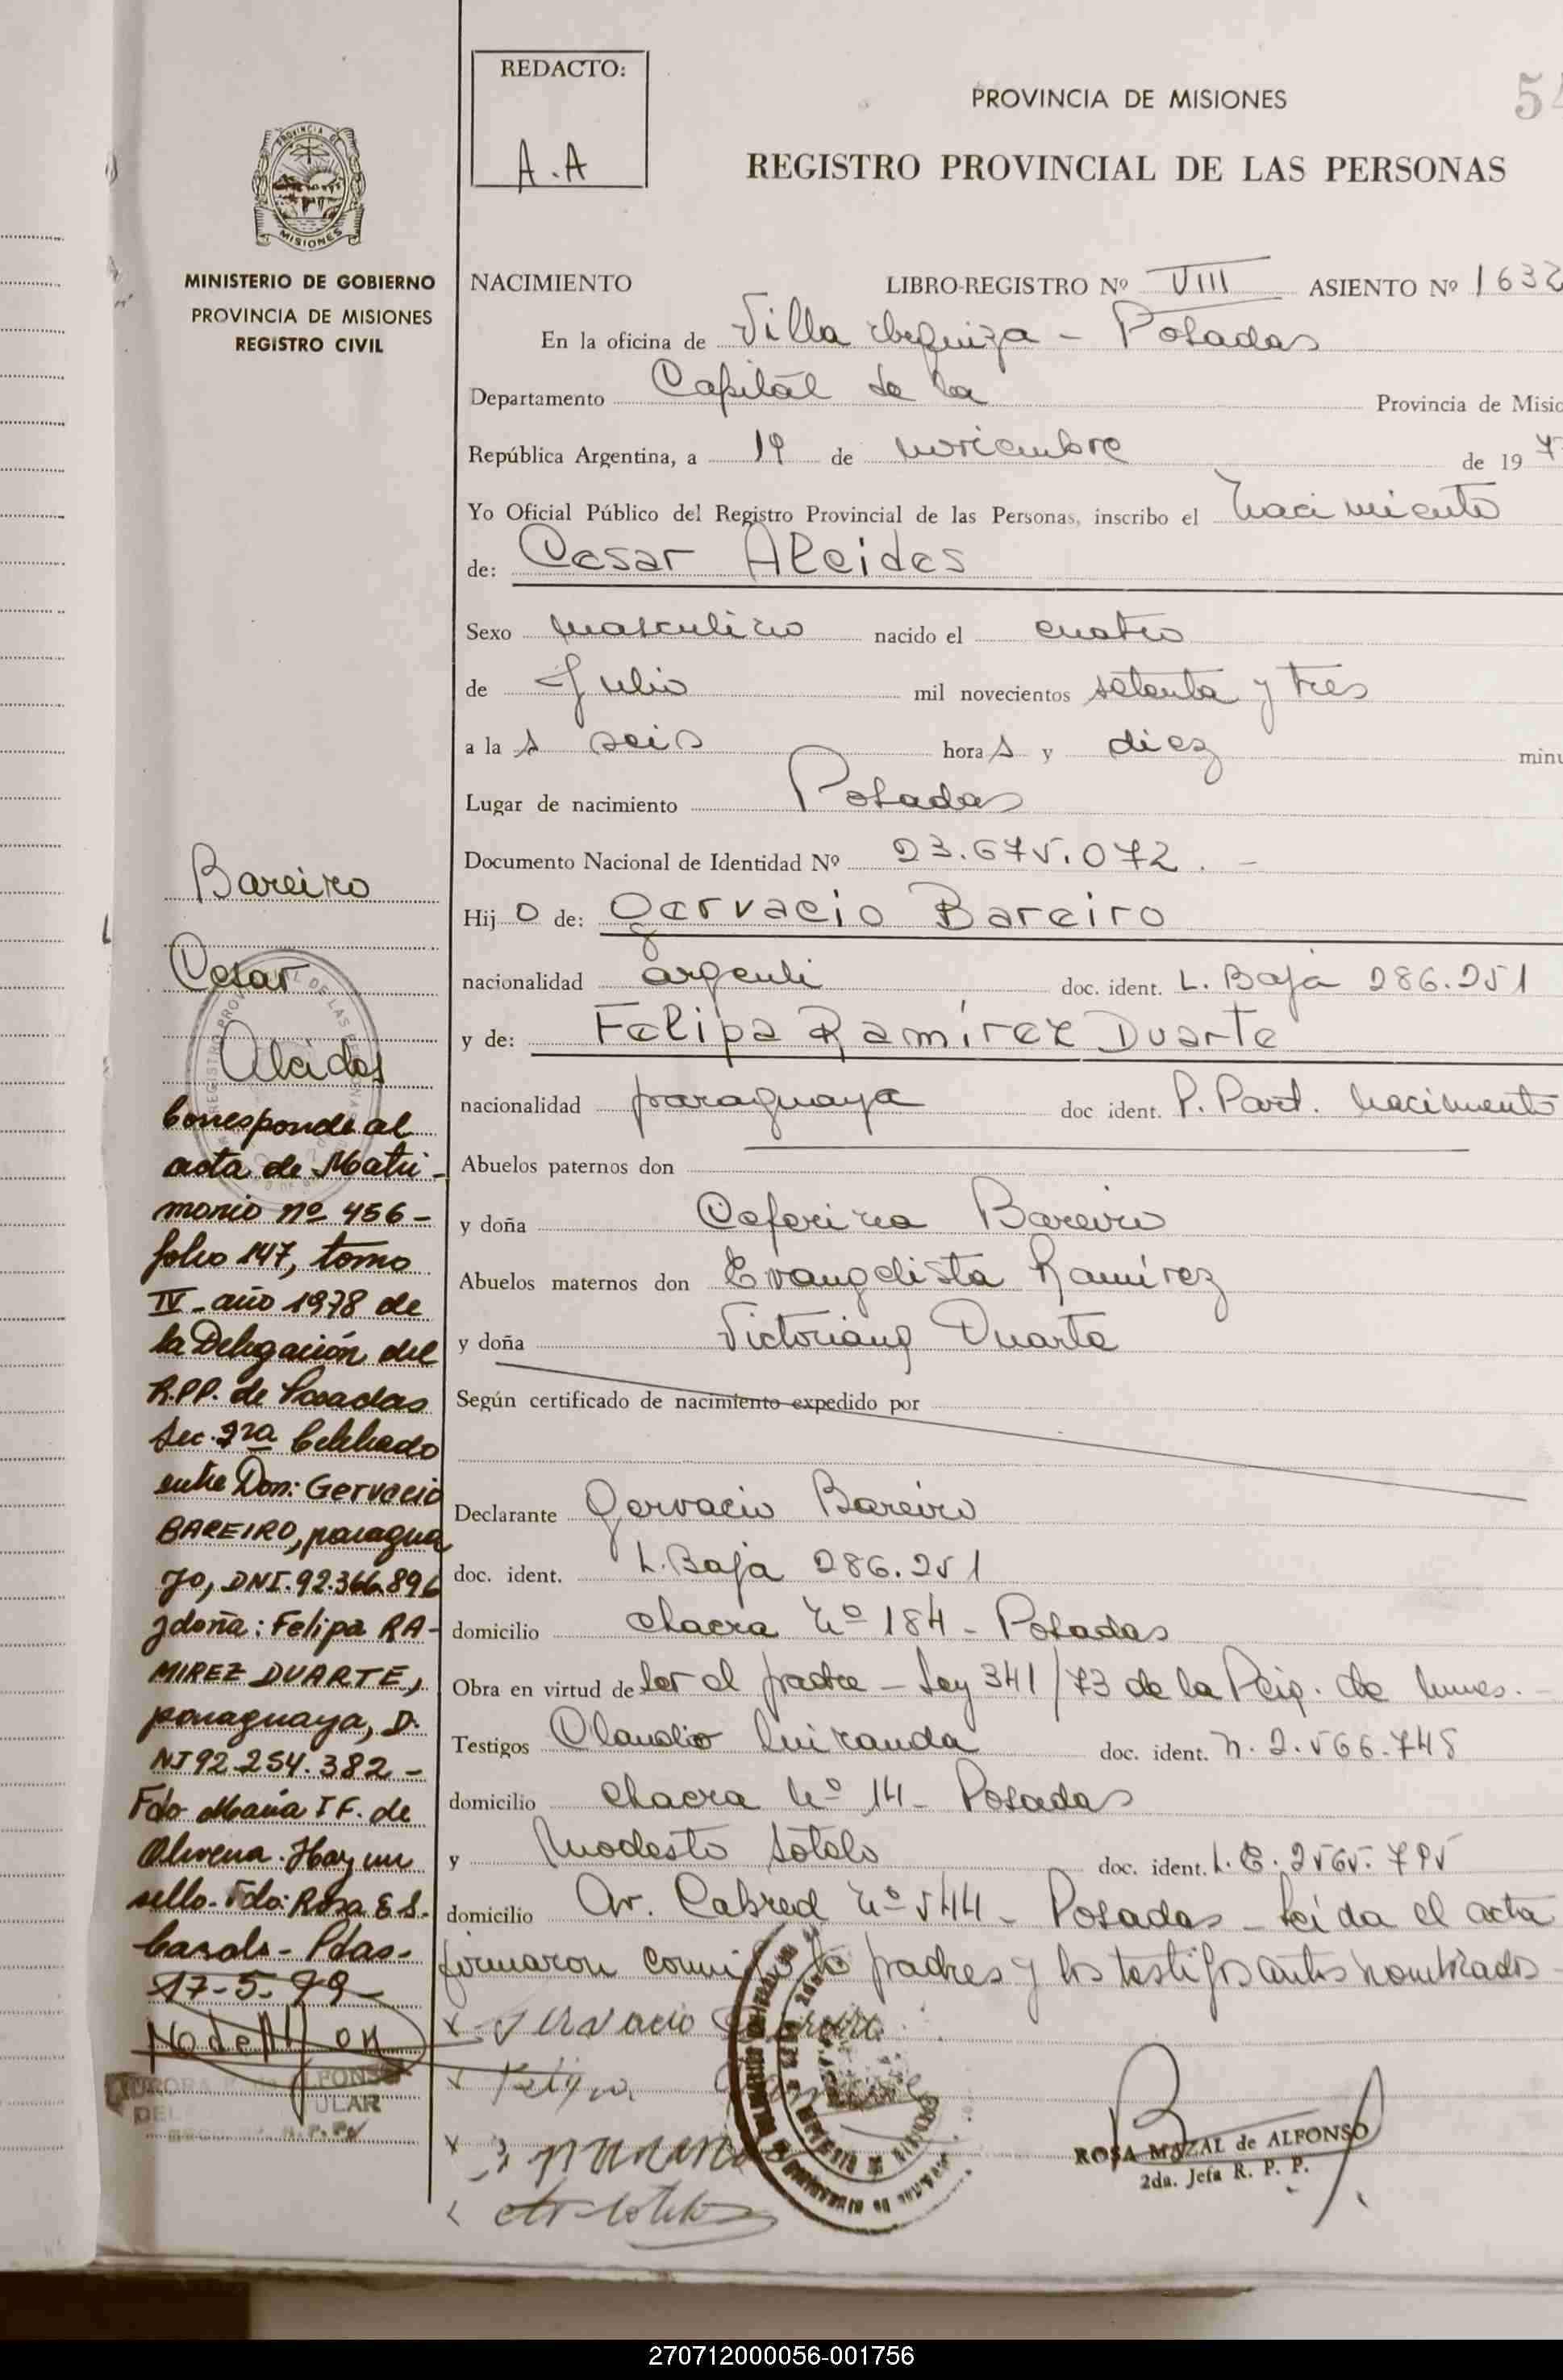 REDACTO:
A.A
PROVINCIA DE MISIONES
54
REGISTRO PROVINCIAL DE LAS PERSONAS
PROVINCIA DE
MISIONES
MINISTERIO DE GOBIERNO
PROVINCIA DE MISIONES
REGISTRO CIVIL
NACIMIENTO LIBRO-REGISTRO Nº VIII ASIENTO Nº 1632
En la oficina de Villa Urquiza - Posadas
Departamento Capital de la Provincia de Misio
República Argentina, a 19 de noviembre de 19 7
Yo Oficial Público del Registro Provincial de las Personas, inscribo el nacimiento
de: Cesar Alcides
Sexo masculino nacido el cuatro
de Julio mil novecientos setenta y tres
a la s seis hora s y diez minu
Lugar de nacimiento Posadas
Documento Nacional de Identidad Nº 23.675.072.-
Hij o de: Gervacio Bareiro
nacionalidad argenti doc. ident. L. Baja 286.251
y de: Felipa Ramírez Duarte
nacionalidad paraguaya doc ident. P. Part. nacimiento
Abuelos paternos don
y doña Ceferina Bareiro
Abuelos maternos don Evangelista Ramírez
y doña Victoriana Duarte
Según certificado de nacimiento expedido por
Declarante Gervacio Bareiro
doc. ident. L. Baja 286.251
domicilio chacra nº 184 - Posadas
Obra en virtud de ser el padre - Ley 341/73 de la
Testigos Claudio Miranda doc. ident. n. 2.566.748
domicilio chacra nº 14 - Posadas
y Modesto Sotelo doc. ident. L.E. 2565.795
domicilio Av. Cabred nº 544 - Posadas - Leída el acta
firmaron conmigo los padres y los testigos antes nombrados -
x Gervacio Bareiro
x Felipa
x
ROSA MAZAL de ALFONSO
2da. Jefa R. P. P.
Bareiro
Cesar
Alcides
Corresponde al
acta de Matri-
monio nº 456-
folio 147, tomo
IV - año 1978 de
la Delegación del
R.P.P. de Posadas
Sec. 2ra Celebrado
entre Don: Gervacio
BAREIRO, paragua
yo, DNI. 92.366.896
y doña: Felipa RA-
MIREZ DUARTE,
paraguaya, D.
NI 92.254.382 -
Fdo María T F. de
Olivera. Hay un
sello. Fdo: Rosa E S.
Casals - Pdas-
17-5-79-
ALFONSO
270712000056-001756